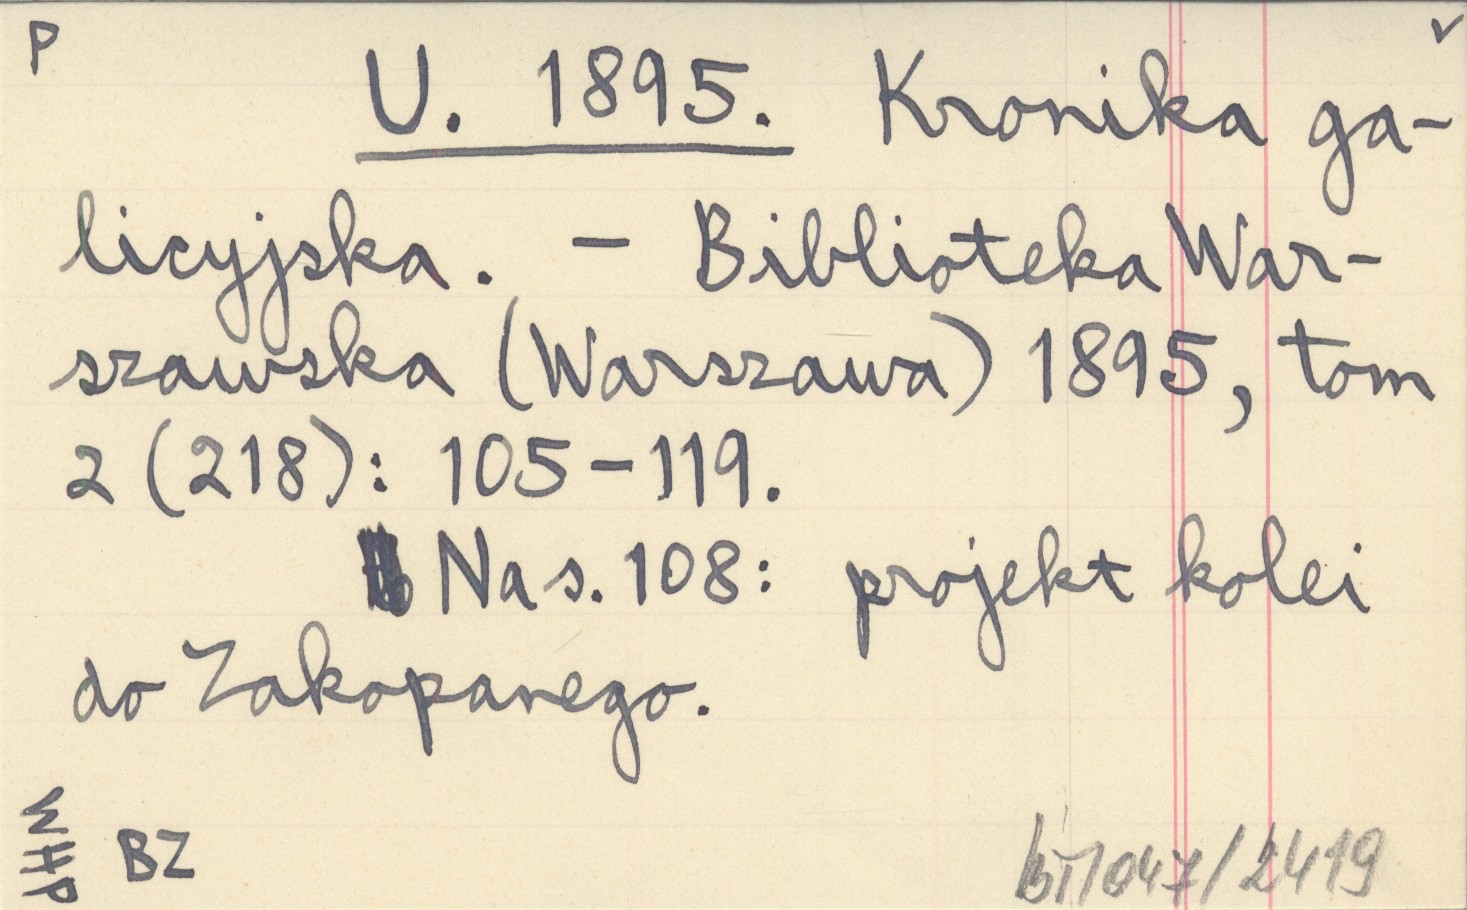 P
✓
U. 1895. Kronika ga-
licyjska. - Biblioteka War-
szawska (Warszawa) 1895, tom
2 (218): 105-119.
Na s. 108: projekt kolei
do Zakopanego.
WHP
BZ
/2419